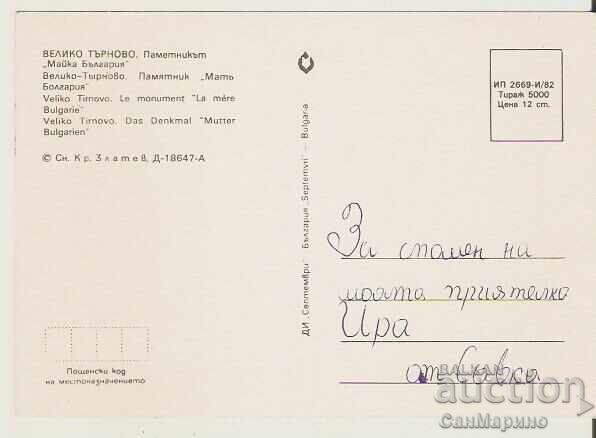 ВЕЛИКО ТЪРНОВО. Паметникът
„Майка България"
Велико-Тырново. Памятник „Мать
Болгария"
Veliko Tirnovo. Le monument "La mère
Bulgarie"
Veliko Tirnovo. Das Denkmal "Mutter
Bulgarien"
© Сн. Кр. Златев, Д-18647-А
Пощенски код
на местоназначението
ДИ „Септември" България „Septemvri" — Bulgaria
ИП 2669-И/82
Тираж 5000
Цена 12 ст.
За спомен на
моята приятелка
Ира
от Савка
BALKAN
auction
СанМарино